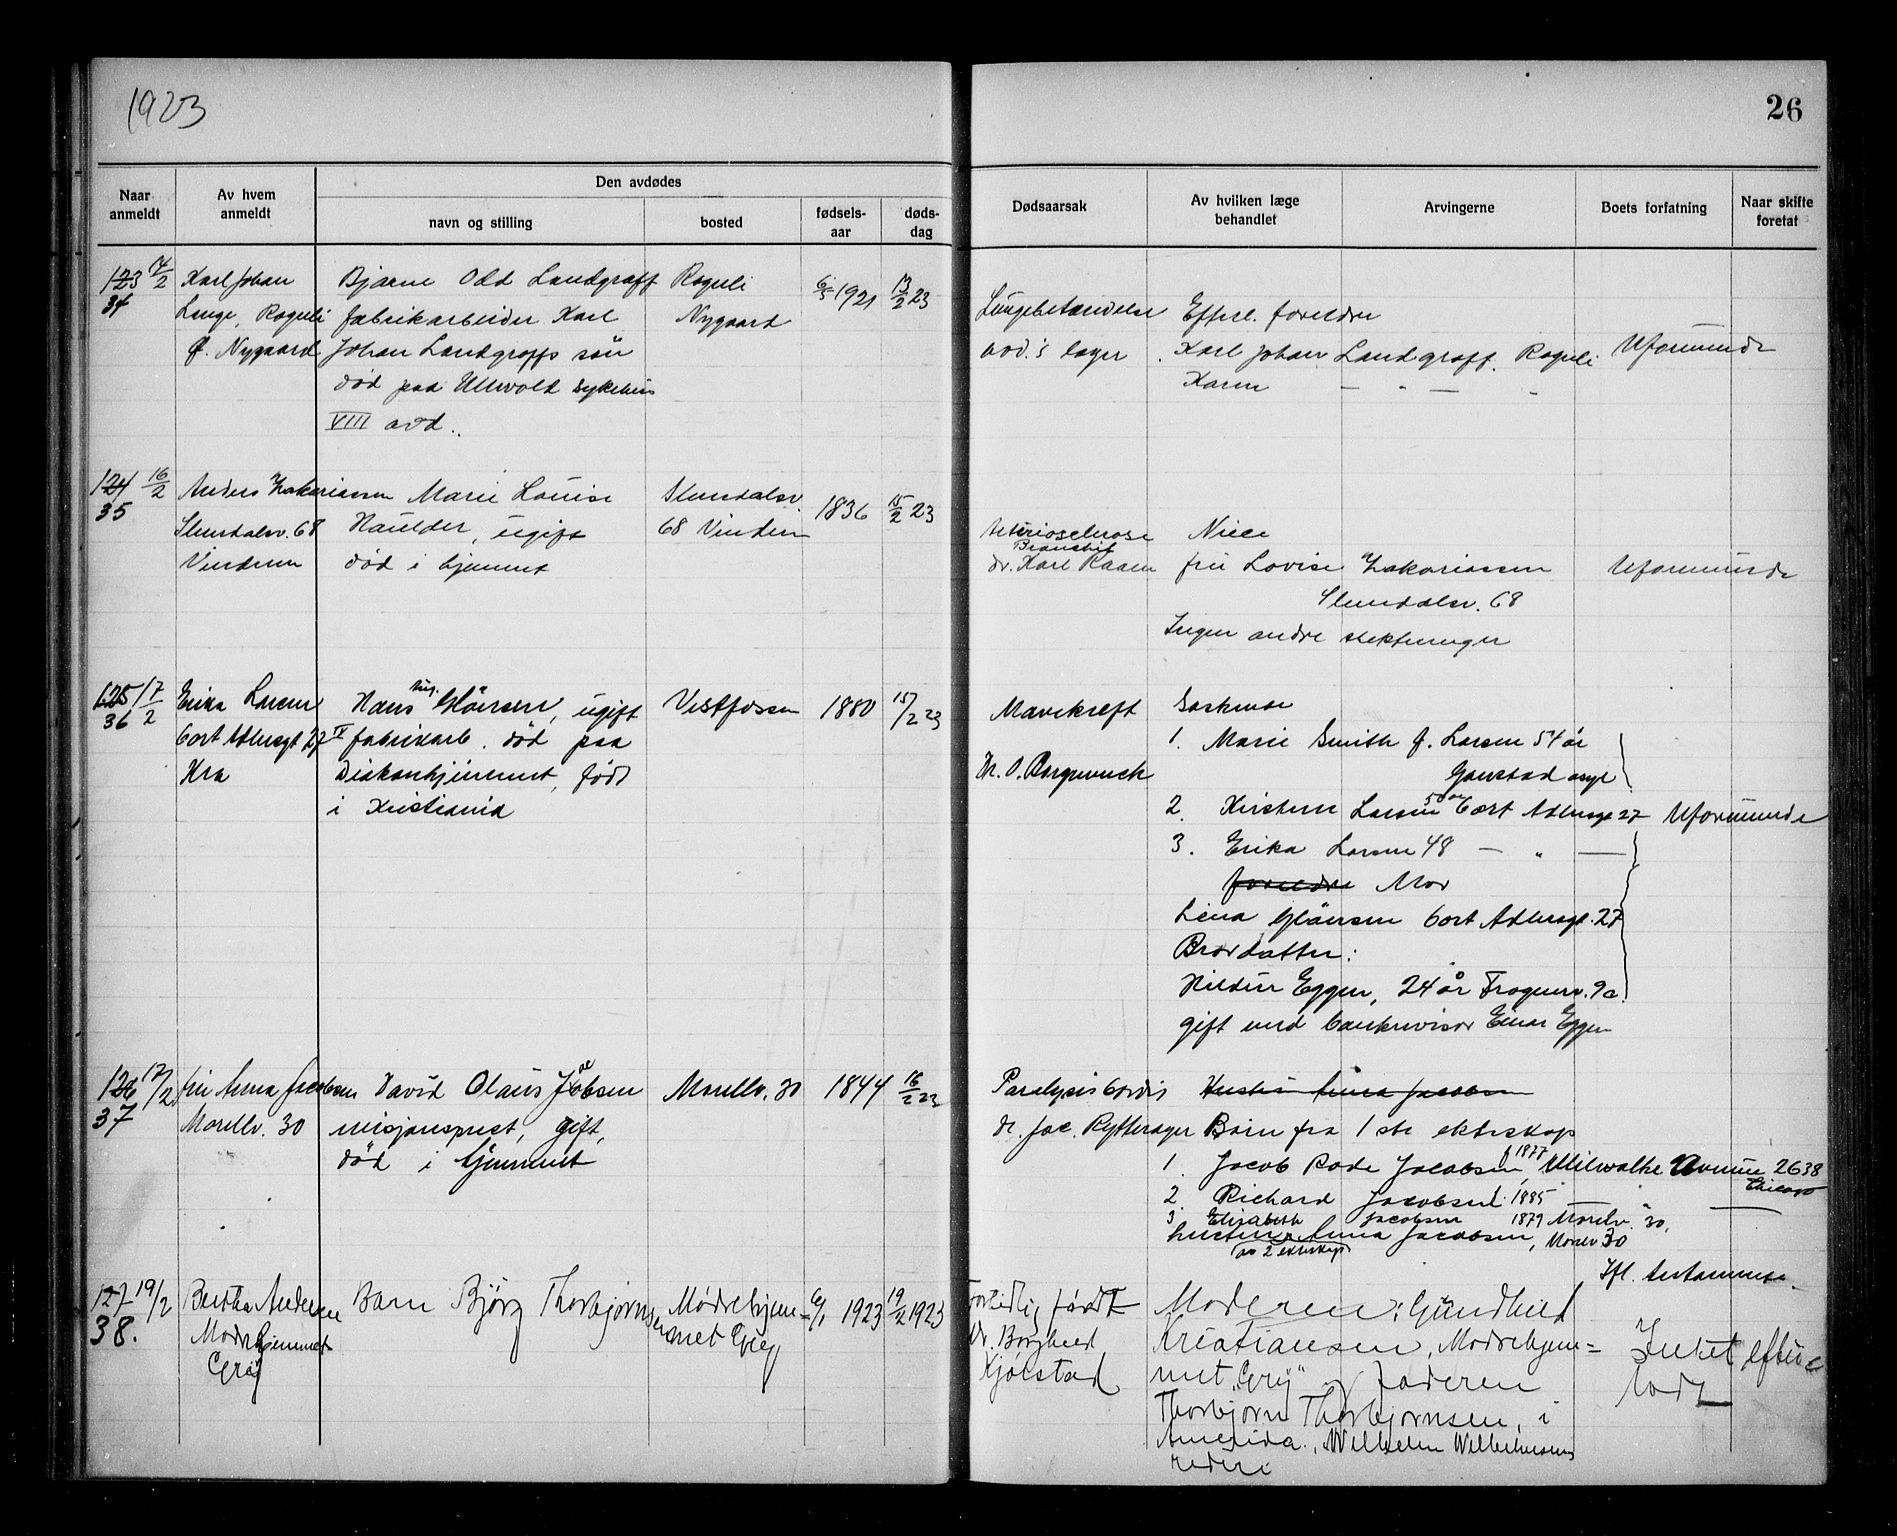 1923
26
Naar anmeldt
Av hvem anmeldt
Den avdødes
navn og stilling
bosted
fødsels-aar
døds-dag
Dødsaarsak
Av hvilken læge behandlet
Arvingerne
Boets forfatning
Naar skifte foretat
123
34
Karl Johan
Bjarne Odd Landgraff
fabrikarbeider Karl
Nygaard
Johan Landgraffs søn
død paa Ullevold sykehus
VIII avd.
1921
13/2 23
Lungebetændelse
avd.'s læger
Efterl. forældre
Karl Johan Landgraff
Karen — " —
Uformuende
124 16/2
35
Anders Zakariassen
68
Vinderen
Marie Louise
ugift
død i hjemmet
68 Vinderen
1836
15/2 23
dr. Karl Raaen
Niece
fru Lovise Zakariassen
68
Ingen andre slektninger
Uformuende
125 17/2
36
Erika Larsen
Cort Adlersgt 27
Kra
Hans
ugift
fabrikarb. død paa
Diakonhjemmet, født
i Kristiania
Vestfossen
1880
15/2 23
Mavekræft
Søskende
1. Marie Smith f. Larsen 54 år
Gaustad asyl
2. Larsen 50 år Cort Adlersgt 27
3. Erika Larsen 48 — " —
forældre Mor
Lina Cort Adlersgt. 27
Brordatter:
Eggen, 24 år Frognerv. 9a.
gift med bankrevisor Einar Eggen
Uformuende
126 17/2
37
fru Anna Jacobsen
Morellv. 30
David Olaus Jacobsen
misjonsprest, gift,
død i hjemmet
Morellv. 30
1844
16/2 23
Paralysis Cordis
dr. Jac. Rytterager
Hustru Anna Jacobsen
Barn fra 1ste ekteskap
1. Jacob Rode Jacobsen f 1877, Milwalke Avenue 2638
Chicago
2. Richard Jacobsen f. 1885 — " —
3. Elisabeth Jacobsen 1879 Morellv. 30,
Anna Jacobsen, Morellv 30
av 2 ekteskap
127 19/2
38.
Bertha Andersen
Mødrehjemmet
Grei
Barn Bjørg Thorbjørnsen
Mødrehjem=
met Grei
1923
19/2 1923
For tidlig født
Dr. Borghild
Kjølstad
Moderen: Gundhild
Kristiansen, Mødrehjem=
met „Grei"
Faderen
Thorbjørn Thorbjørnsen, i
Amerika, Wilhelm Wilhelmsens
rederi
Intet efterladt